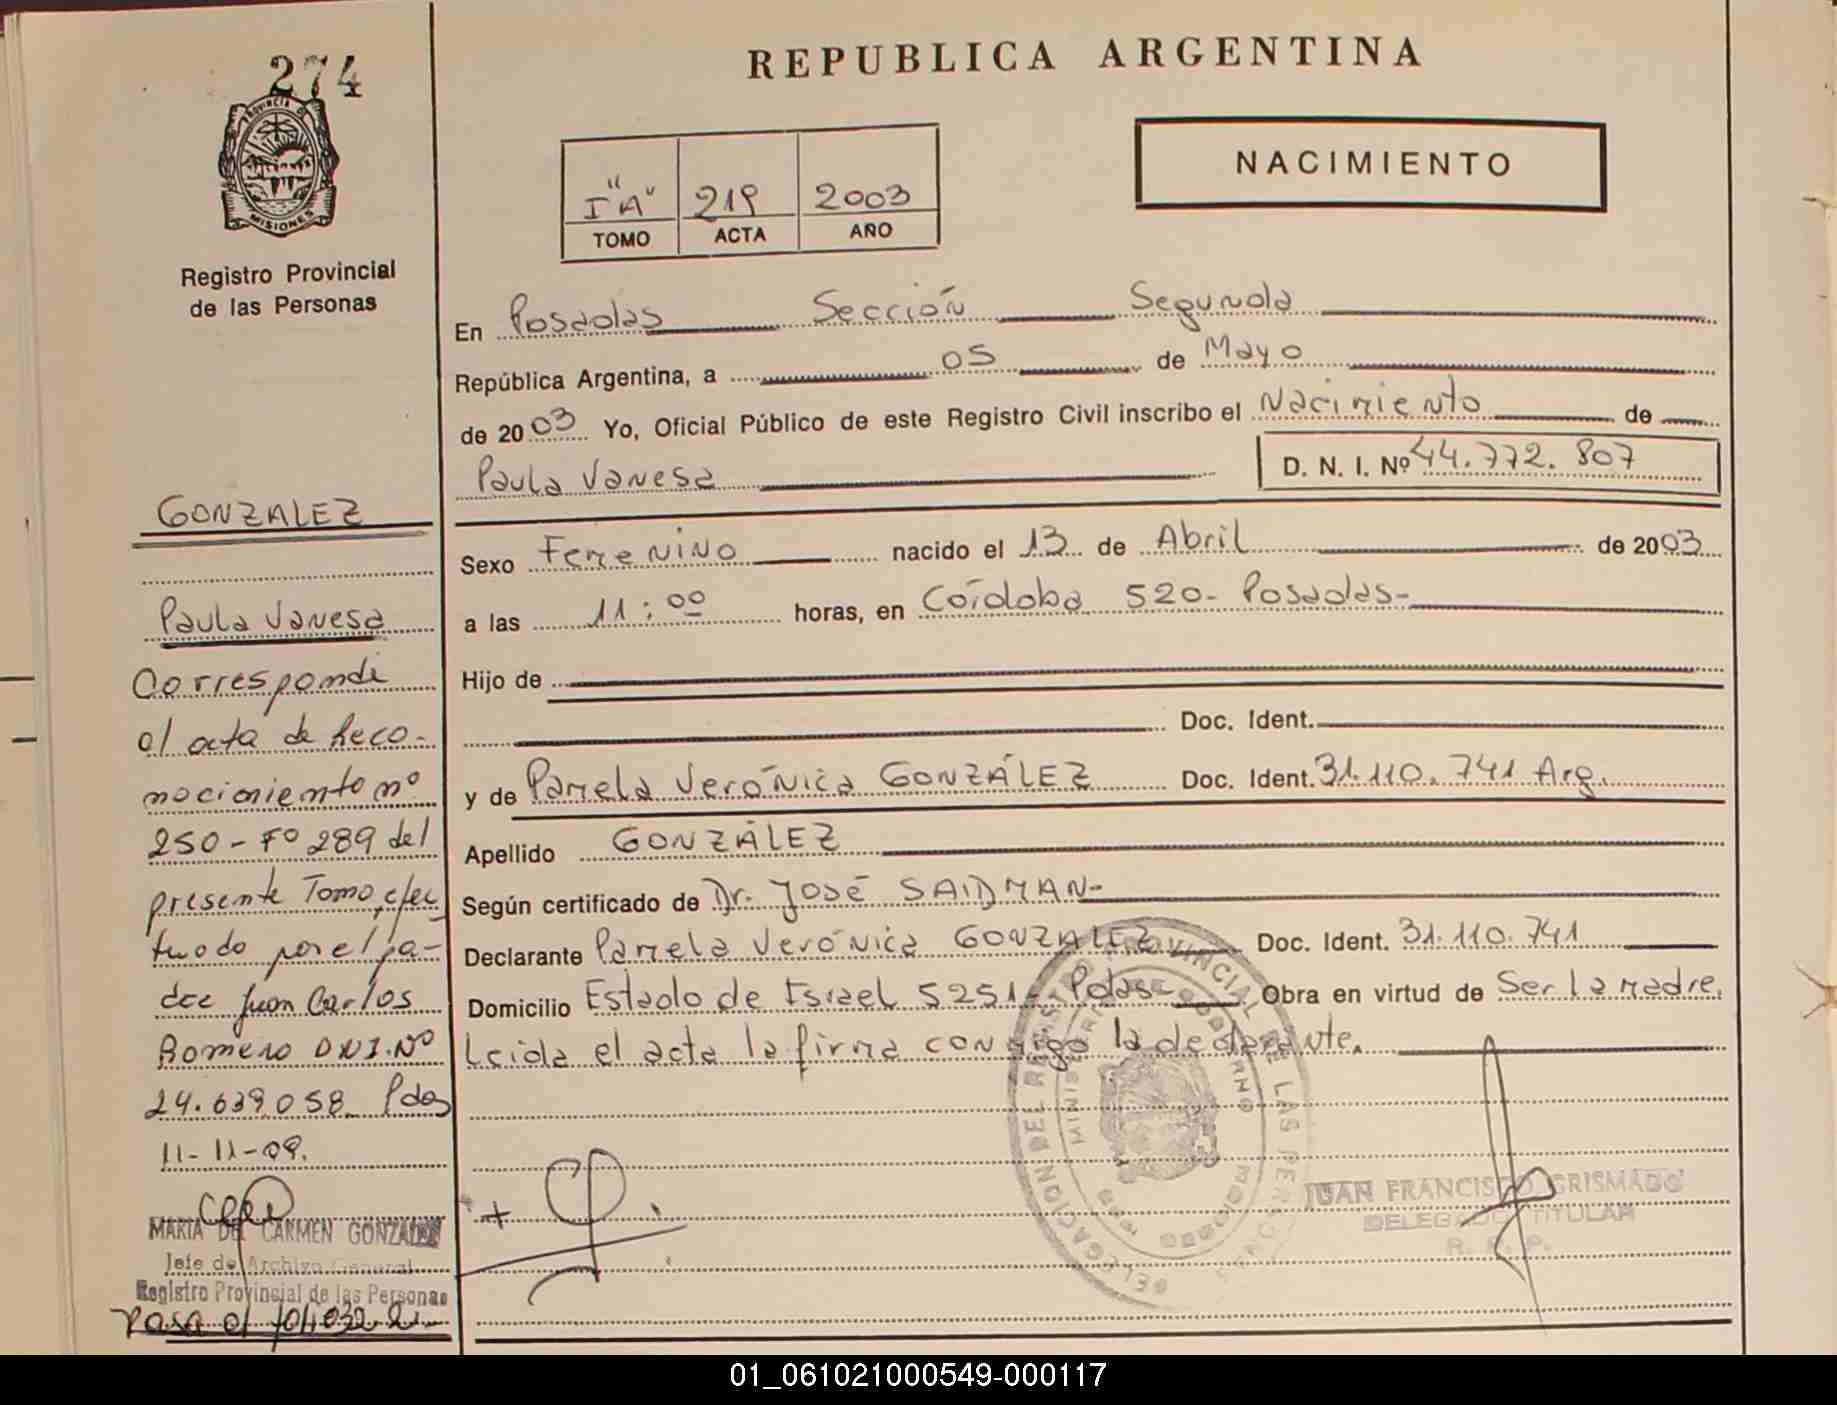 274
PROVINCIA DE
MISIONES
Registro Provincial
de las Personas
GONZALEZ
Paula Vanesa
Corresponde
al acta de Reco-
nocimiento nº
250 - Fº 289 del
presente Tomo, efec
tuado por el pa-
dre Juan Carlos
Romero DNI. Nº
24.639.058 Pdas
11-11-09.
MARIA DEL CARMEN GONZALEZ
Jefe de Archivo General
Registro Provincial de las Personas
Pasa al folio
REPUBLICA ARGENTINA
I "A" 219 2003
TOMO ACTA AÑO
NACIMIENTO
En Posadas Sección Segunda
República Argentina, a 05 de Mayo
de 2003 Yo, Oficial Público de este Registro Civil inscribo el Nacimiento de
Paula Vanesa D. N. I. Nº 44.772.807
Sexo Femenino nacido el 13 de Abril de 2003
a las 11:00 horas, en Córdoba 520- Posadas-
Hijo de
Doc. Ident.
y de Pamela Verónica GONZÁLEZ Doc. Ident. 31.110.741 Arg.
Apellido GONZÁLEZ
Según certificado de Dr. José SAIDMAN-
Declarante Pamela Verónica GONZALEZ Doc. Ident. 31.110.741
Domicilio Estado de Israel 5251- Pdas- Obra en virtud de Ser la madre.
Leida el acta la firma conmigo la declarante.
DELEGACION DEL REGISTRO PROVINCIAL DE LAS PERSONAS
MINISTERIO DE GOBIERNO
MISIONES
JUAN FRANCISCO GRISMADO
DELEGADO TITULAR
R. P. P.
01_061021000549-000117